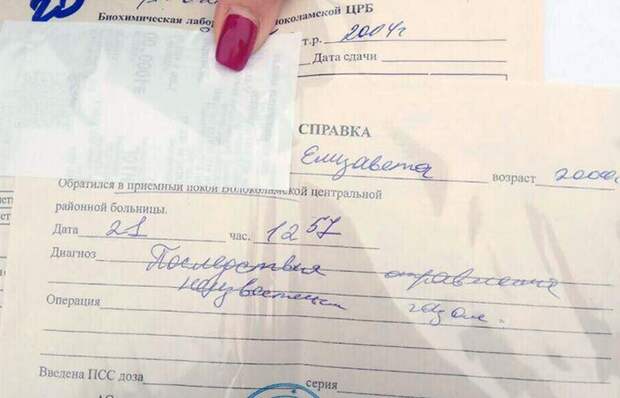 20
Биохимическая Волоколамской ЦРБ
т.р. 2004г
Дата сдачи
СПРАВКА
Елизавета возраст 2000г.
Обратился в приемный покой Волоколамской центральной
районной больницы.
Дата 21 час. 12 57
Диагноз Последствия отравления
неизвестным газом.
Операция
Введена ПСС доза серия